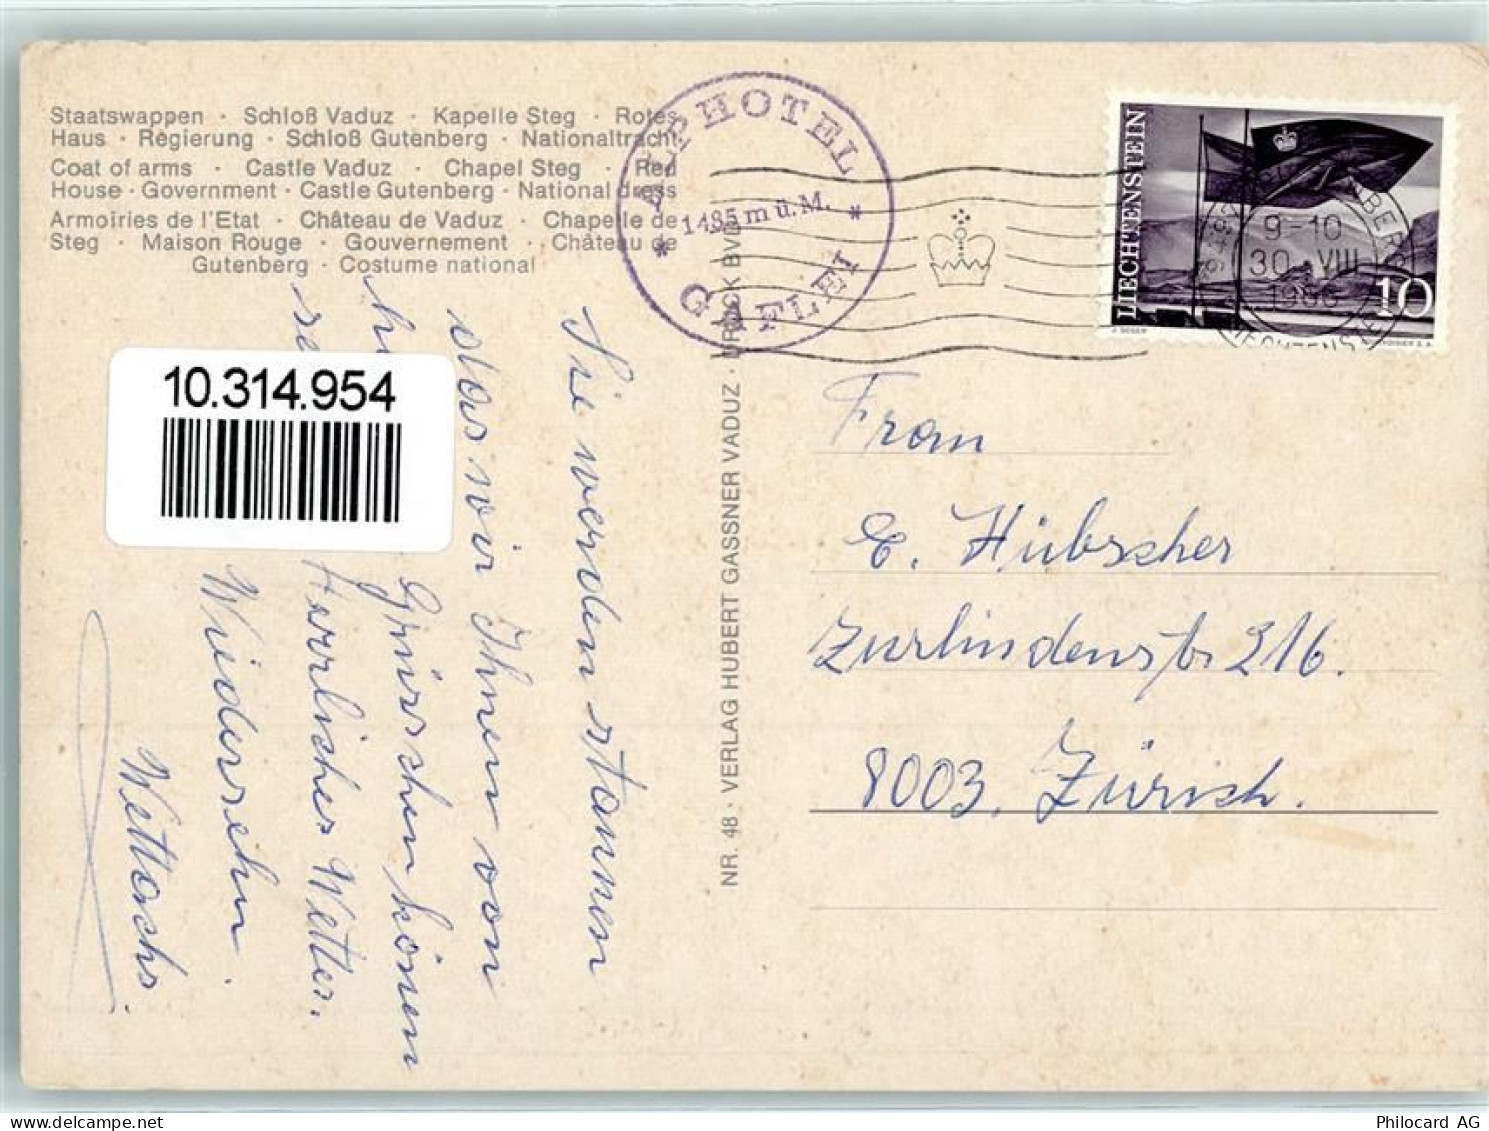 Staatswappen · Schloß Vaduz · Kapelle Steg · Rotes
Haus · Regierung · Schloß Gutenberg · Nationaltracht
Coat of arms · Castle Vaduz · Chapel Steg · Red
House · Government · Castle Gutenberg · National dress
Armoiries de l'Etat · Château de Vaduz · Chapelle de
Steg · Maison Rouge · Gouvernement · Château de
Gutenberg · Costume national
ALPHOTEL
* 1485 m ü. M. *
GAFLEI
LIECHTENSTEIN
10
9-10
30. VIII
LIECHTENSTEIN
10.314.954
Sie werden stannen
das wir Ihnen von
Grüsschen können
Herrliches Wetter.
Wiedersehn
Wettachs.
NR. 48 · VERLAG HUBERT GASSNER VADUZ · DRUCK BVD
Frau
E. Hübscher
Zurlindenstr 216.
8003. Zürich.
Philocard AG